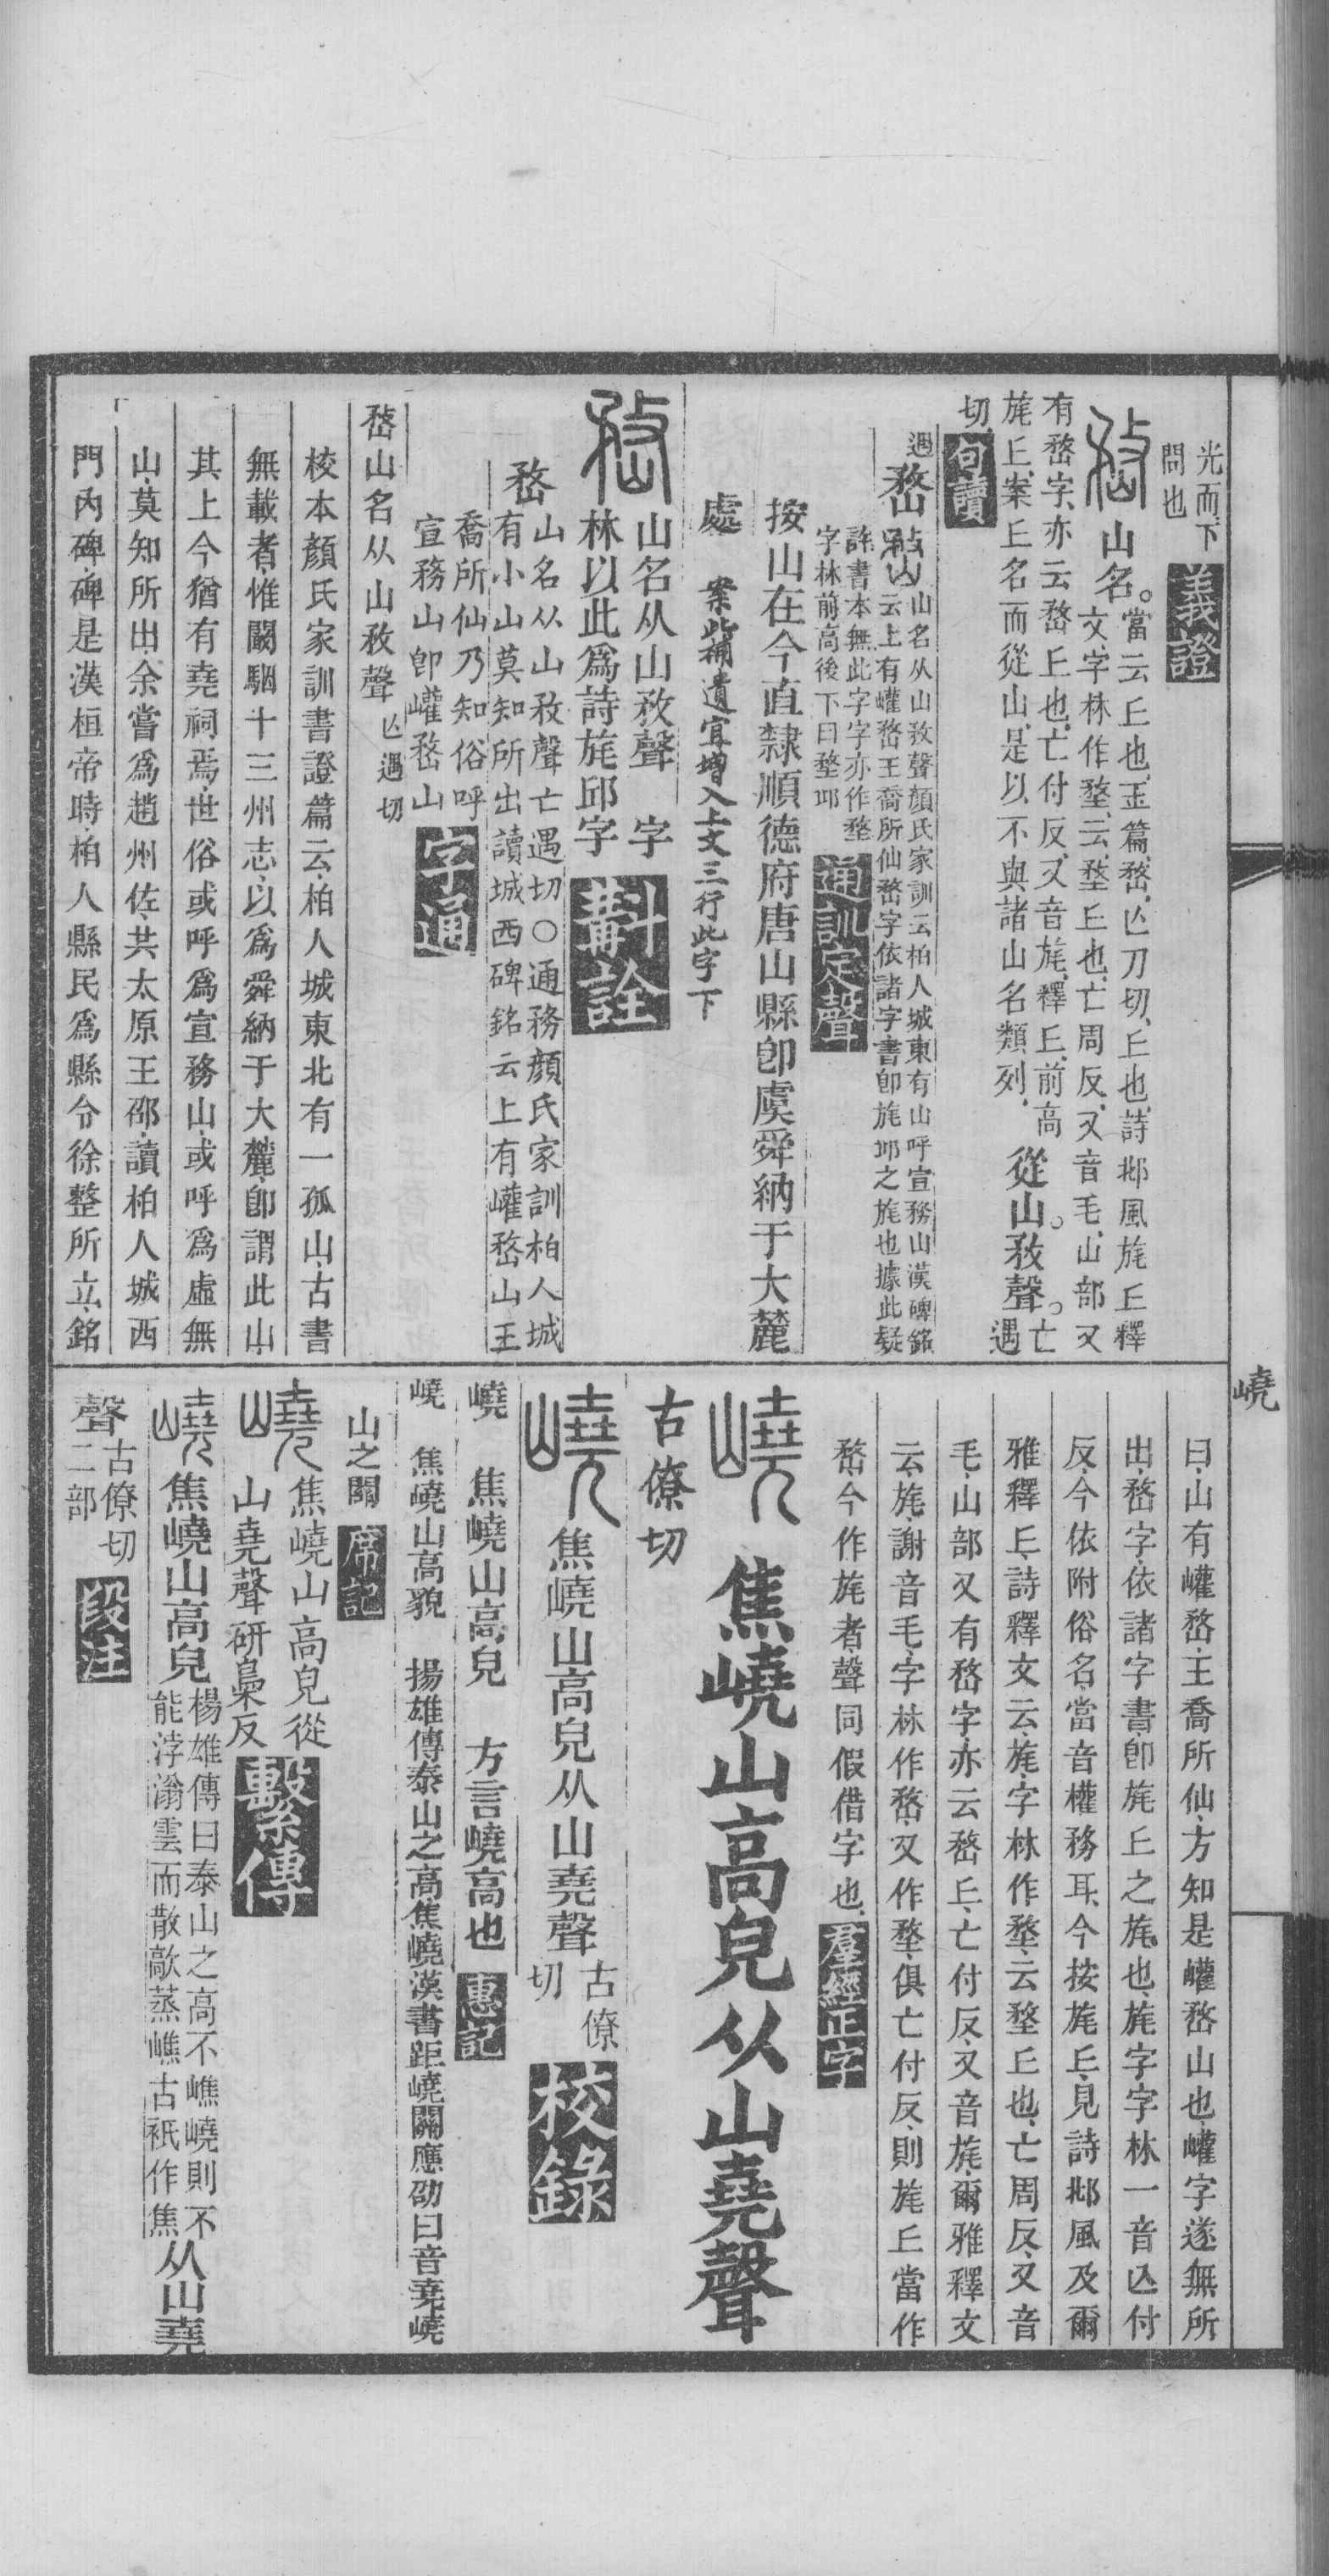 光而下
問也
義證
山名。當云丘也玉篇嵍亾刀切丘也詩邶風旄丘釋
文字林作堥云堥丘也亡周反又音毛山部又
有嵍字亦云嵍丘也亡付反又音旄釋丘前高
旄丘案丘名而從山是以不與諸山名類列
從山。敄聲。亡遇
切
句讀
嵍
山名从山敄聲顏氏家訓云柏人城東有山呼宣務山漢碑銘
云上有巏嵍王喬所仙嵍字依諸字書卽旄邱之旄也據此疑
許書本無此字字亦作堥
字林前高後下曰堥邱
通訓定聲
按山在今直隸順德府唐山縣卽虞舜納于大麓
處
案此補遺宜增入上文三行此字下
山名从山敄聲 字
林以此爲詩旄邱字
斠詮
嵍
山名从山敄聲亡遇切〇通務顏氏家訓柏人城
有小山莫知所出讀城西碑銘云上有巏嵍山王
喬所仙乃知俗呼
宣務山卽巏嵍山
字通
嵍山名从山敄聲亾遇切
校本顏氏家訓書證篇云柏人城東北有一孤山古書
無載者惟闞駰十三州志以爲舜納于大麓卽謂此山
其上今猶有堯祠焉世俗或呼爲宣務山或呼爲虛無
山莫知所出余嘗爲趙州佐共太原王邵讀柏人城西
門內碑碑是漢桓帝時柏人縣民爲縣令徐整所立銘
嶢
曰山有巏嵍王喬所仙方知是巏嵍山也巏字遂無所
出嵍字依諸字書卽旄丘之旄也旄字字林一音亾付
反今依附俗名當音權務耳今按旄丘見詩邶風及爾
雅釋丘詩釋文云旄字林作堥云堥丘也亡周反又音
毛山部又有嵍字亦云嵍丘亡付反又音旄爾雅釋文
云旄謝音毛字林作嵍又作堥俱亡付反則旄丘當作
嵍今作旄者聲同假借字也
羣經正字
嶢 焦嶢山高皃从山堯聲
古僚切
嶢 焦嶢山高皃从山堯聲 古僚
切
校錄
嶢 焦嶢山高皃 方言嶢高也
惠記
嶢 焦嶢山高貌 揚雄傳泰山之高焦嶢漢書距嶢關應劭曰音堯嶢
山之關
席記
嶢 焦嶢山高皃從
山堯聲研梟反
繫傳
嶢 焦嶢山高皃
楊雄傳曰泰山之高不嶕嶢則不
能浡滃雲而散歊蒸嶕古衹作焦
从山堯
聲 古僚切
二部
段注